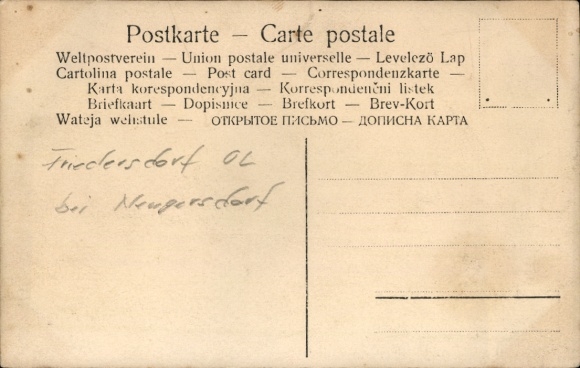 Postkarte — Carte postale
Weltpostverein — Union postale universelle — Levelező Lap
Cartolina postale — Post card — Correspondenzkarte —
Karta korespondencyjna — Korrespondenční listek
Briefkaart — Dopisnice — Brefkort — Brev-Kort
Wateja wehstule — ОТКРЫТОЕ ПИСЬМО — ДОПИСНА КАРТА
Friedersdorf OL
bei Neugersdorf